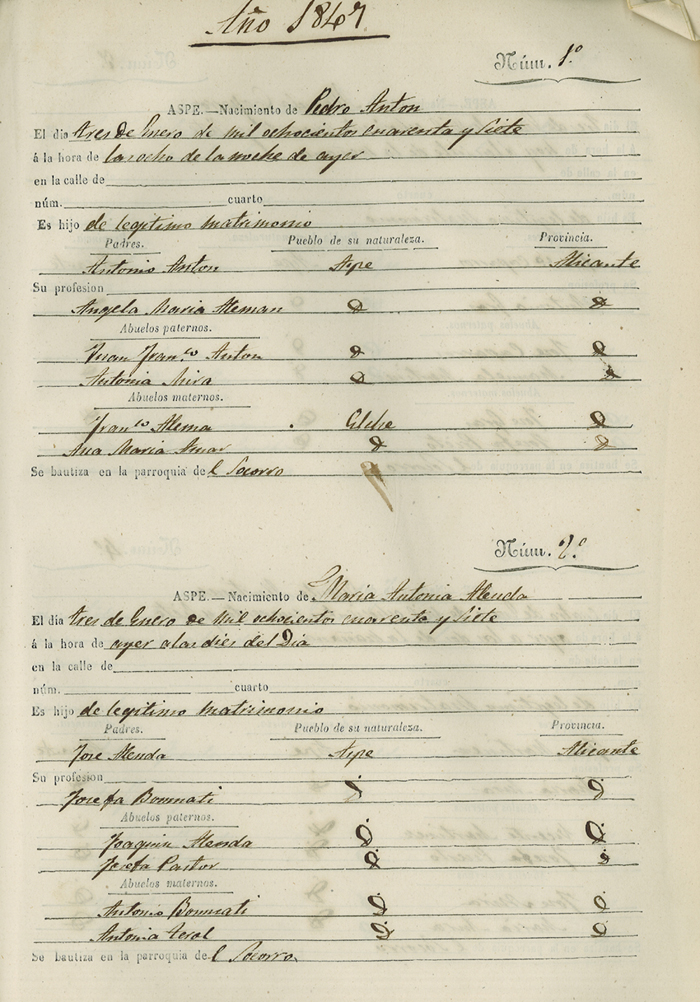 Año 1847
Núm. 1º
ASPE.—Nacimiento de Pedro Anton
El dia tres de Enero de mil ochocientos cuarenta y siete
á la hora de las ocho de la noche de ayer
en la calle de
núm. cuarto
Es hijo de legitimo matrimonio
Padres. Pueblo de su naturaleza. Provincia.
Antonio Anton Aspe Alicante
Su profesion
Angela Maria Aleman d d
Abuelos paternos.
Juan Fran.co Anton d d
Antonia Mira d d
Abuelos maternos.
Fran.co Alema Elche d
Ana Maria d d
Se bautiza en la parroquia del Socorro
Núm. 2º
ASPE.—Nacimiento de Maria Antonia Alenda
El dia tres de Enero de mil ochocientos cuarenta y siete
á la hora de ayer a las dies del Dia
en la calle de
núm. cuarto
Es hijo de legitimo matrimonio
Padres. Pueblo de su naturaleza. Provincia.
Jose Alenda Aspe Alicante
Su profesion
Josefa Bonmati d d
Abuelos paternos.
Joaquin Alenda d d
Josefa Pastor d d
Abuelos maternos.
Antonio Bonmati d d
Antonia Terol d d
Se bautiza en la parroquia del Socorro